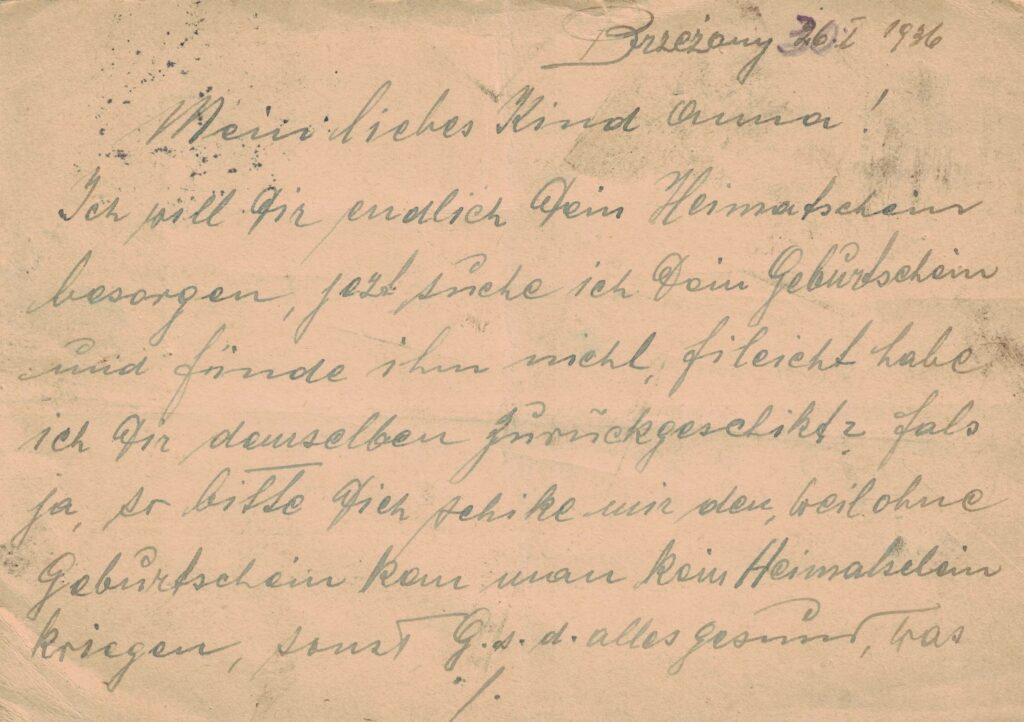 Brzeżany 26.I 1936
Mein liebes Kind Anna!
Ich will Dir endlich Dein Heimatschein
besorgen, jezt suche ich Dein Geburtschein
und fünde ihm nicht, fileicht habe
ich Dir demselben zurückgeschikt? fals
ja, so bitte Dich schike mir den, weil ohne
Geburtschein kan man kein Heimatschein
kriegen, sonst G.s.d. alles gesund, was
./.